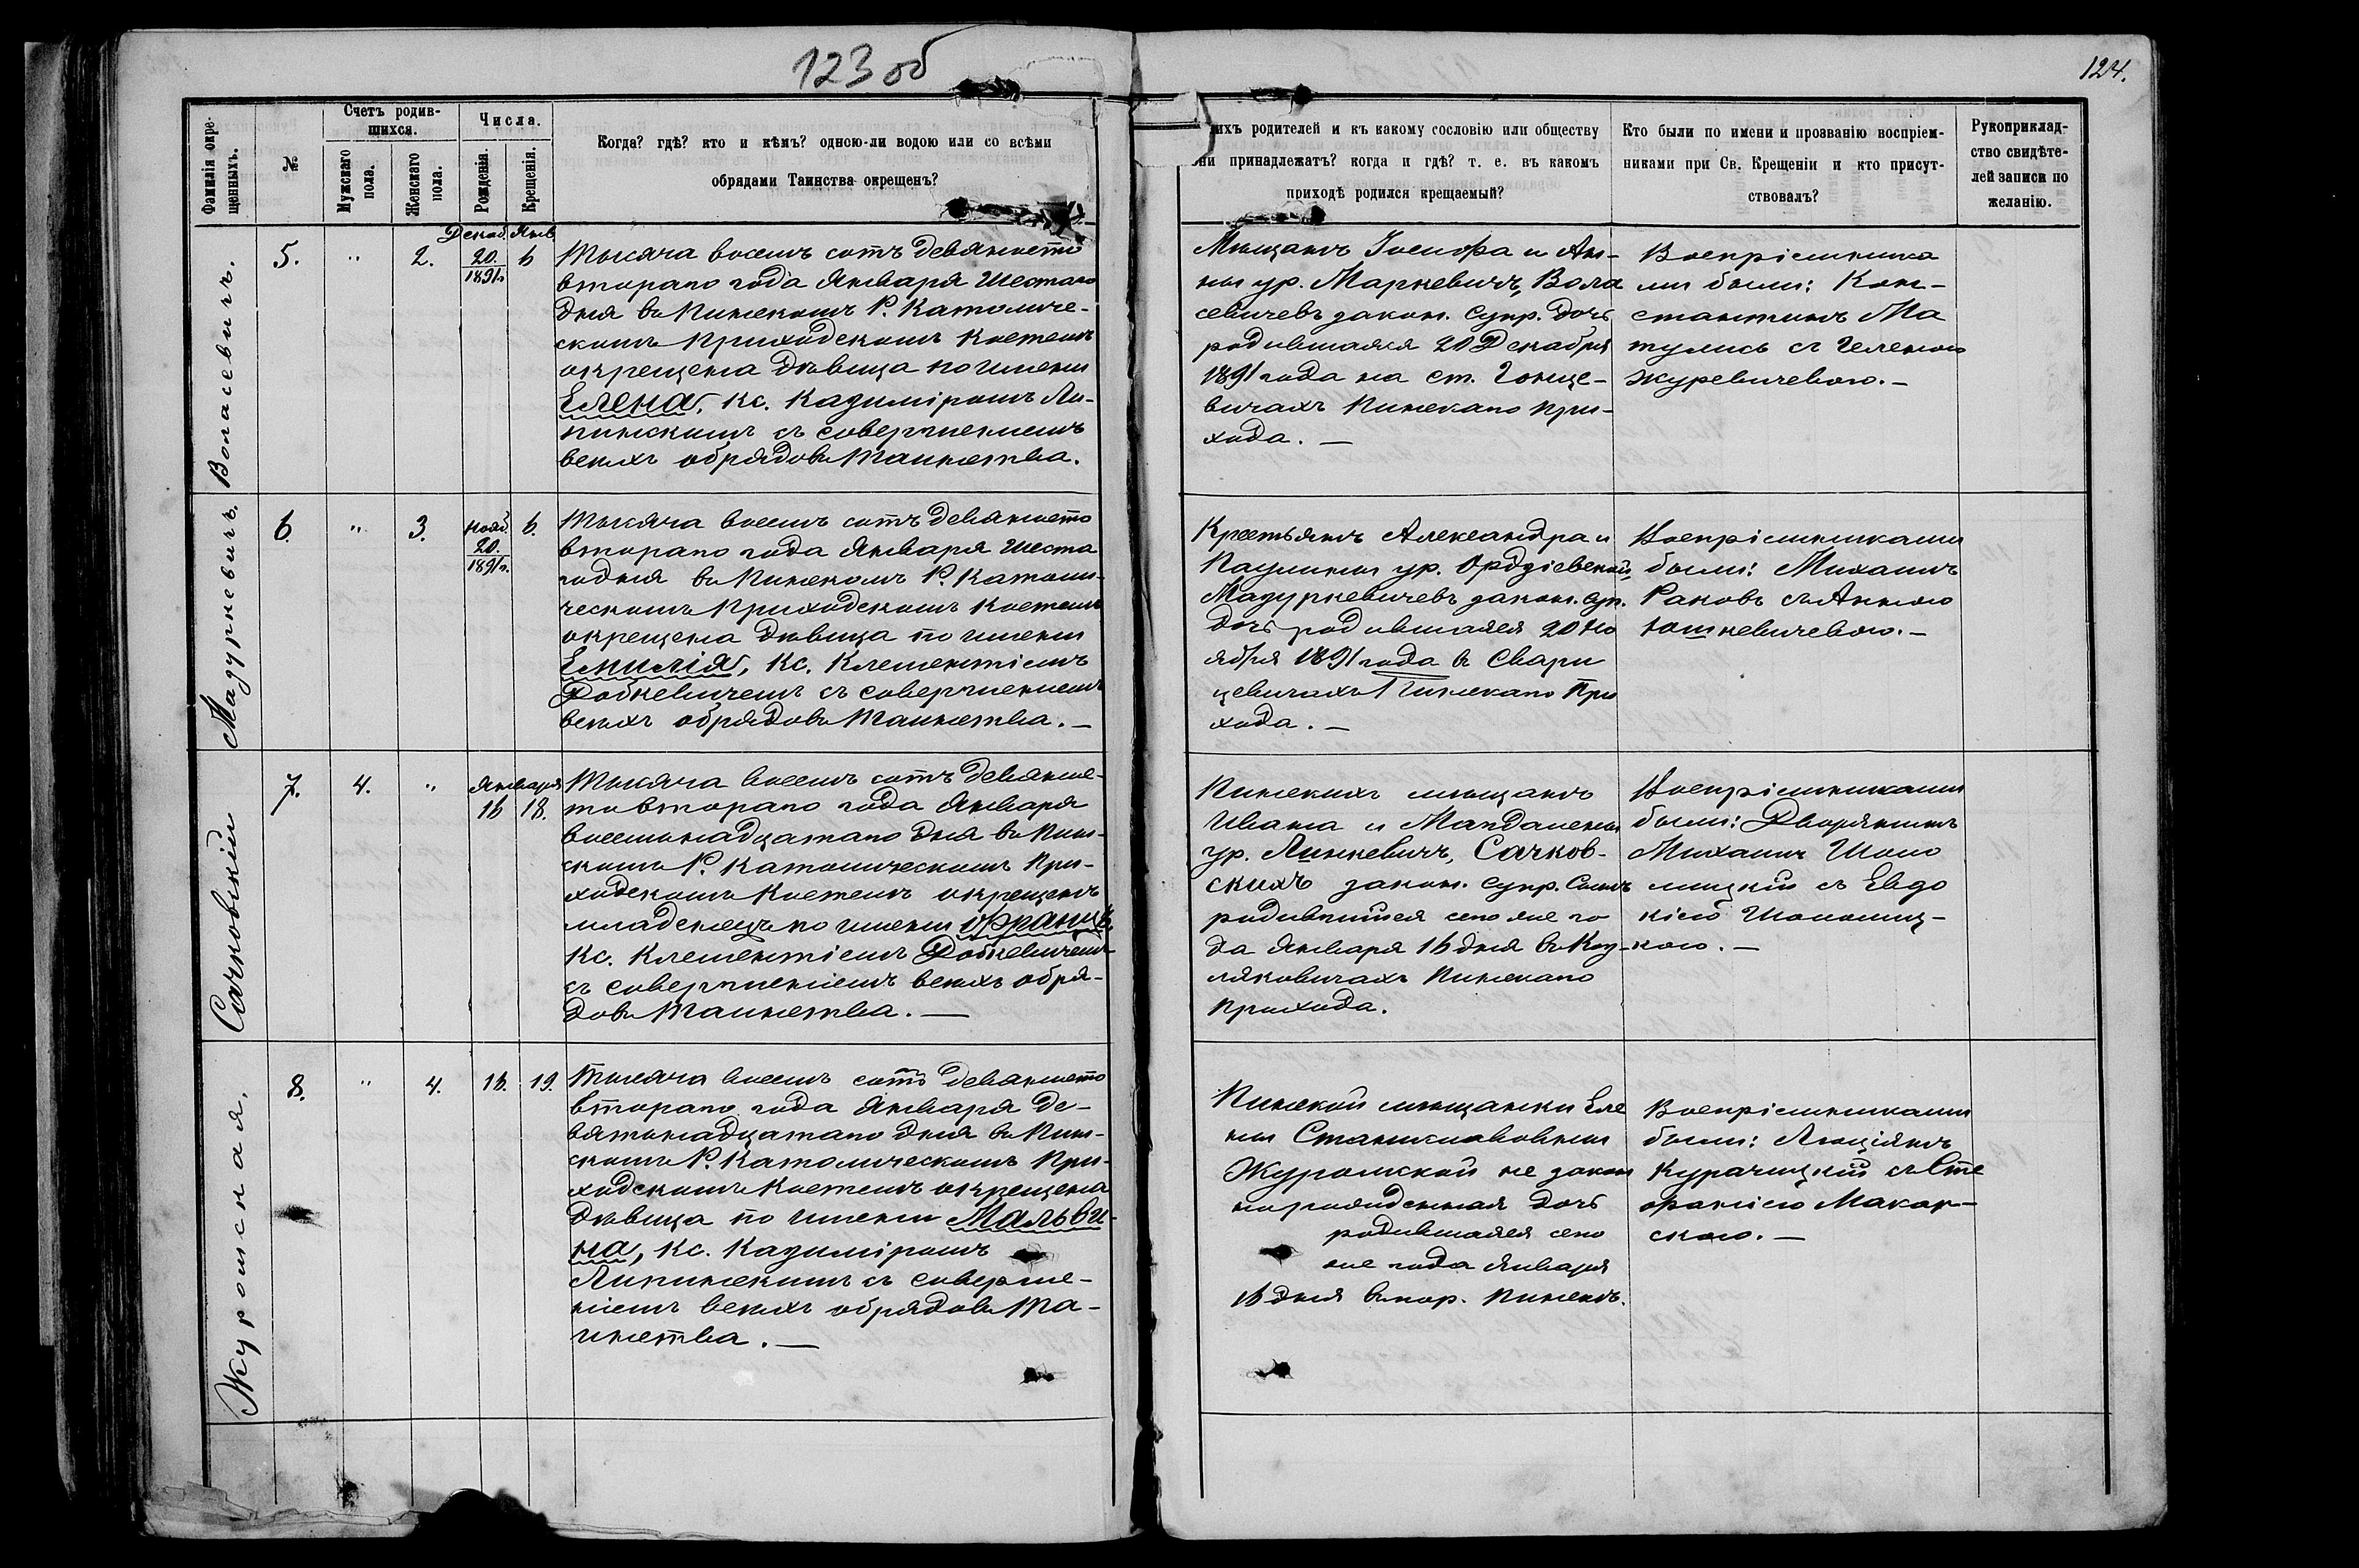 123 об
124.
Фамилія окре-
щенныхъ.
№
Счетъ родив-
шихся.
Мужскаго
пола.
Женскаго
пола.
Числа.
Рожденія.
Крещенія.
Когда? гдѣ? кто и кѣмъ? одною-ли водою или со всѣми
обрядами Таинства окрещенъ?
ихъ родителей и къ какому сословію или обществу
ни принадлежатъ? когда и гдѣ? т. е. въ какомъ
приходѣ родился крещаемый?
Кто были по имени и прозванію воспріем-
никами при Св. Крещеніи и кто присут-
ствовалъ?
Рукоприклад-
ство свидѣте-
лей записи по
желанію.
Воласевичъ.
5.
"
2.
Декаб. Янв
20.
1891г.
6
Тысяча восемъ сотъ девяносто
втораго года Января Шестаго
дня въ Пинскомъ Р. Католиче-
скомъ Приходскомъ Костелѣ
окрещена дѣвица по имени
Елена, Кс. Казиміромъ Ли-
пинскимъ съ совершеніемъ
всѣхъ обрядовъ Таинства.
Мѣщанъ Іосифа и Ан-
ны ур. Маркевичъ, Вола
севичевъ закон. супр. дочь
родившаяся 20 Декабря
1891 года на ст. Гонце-
вичахъ Пинскаго При-
хода. —
Воспріемника
ми были: Кон-
стантинъ Ма
тулисъ съ Геленою
Журевичевою. —
Мазуркевичъ.
6.
"
3.
Нояб.
20.
1891г.
6.
Тысяча восемъ сотъ девяносто
втораго года Января Шеста
го дня въ Пинскомъ Р. Католи-
ческомъ Приходскомъ Костелѣ
окрещена дѣвица по имени
Емилія, Кс. Клементіемъ
Добкевичемъ съ совершеніемъ
всѣхъ обрядовъ Таинства. —
Крестьянъ Александра и
Паулины ур. Ордзіевской,
Мазуркевичевъ закон. суп.
дочь родившаяся 20 Но
ября 1891 года въ Свари
цевичахъ Пинскаго При
хода. —
Воспріемниками
были: Михаилъ
Раковъ съ Анною
Юшкевичевою. —
Сачковскій
7.
4.
"
Января
16
18.
Тысяча восемъ сотъ девяно-
сто втораго года Января
восемнадцатаго дня въ Пин-
скомъ Р. Католическомъ При-
ходскомъ Костелѣ окрещенъ
младенецъ по имени Францъ,
Кс. Клементіемъ Добкевичемъ
съ совершеніемъ всѣхъ обря-
довъ Таинства. —
Пинскихъ мѣщанъ
Ивана и Магдалены
ур. Линкевичъ, Сачков-
скихъ закон. супр. сынъ
родившійся сего же го
да Января 16 дня въ Коз-
ляковичахъ Пинскаго
Прихода.
Воспріемниками
были: Дворянинъ
Михаилъ Шоло
мицкій съ Евдо
кіею Шоломиц-
кою. —
Журомская.
8.
"
4.
16.
19.
Тысяча восемъ сотъ девяносто
втораго года Января де-
вятнадцатаго дня въ Пин-
скомъ Р. Католическомъ При-
ходскомъ Костелѣ окрещена
дѣвица по имени Мальви-
на, Кс. Казиміромъ
Липинскимъ съ соверше-
ніемъ всѣхъ обрядовъ Та-
инства. —
Пинской мѣщанки Еле
ны Станиславовны
Журомской не закон
норожденная дочь
родившаяся сего
же года Января
16 дня въ гор. Пинскѣ.
Воспріемниками
были: Люціянъ
Курачицкій съ Сте
фаніею Макар-
скою. —